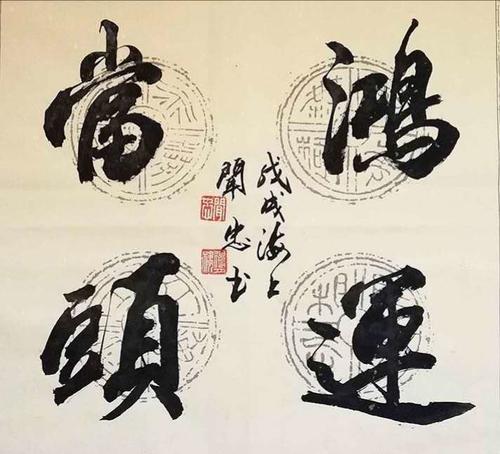 鴻運
當頭
戊戌海上
聞忠书